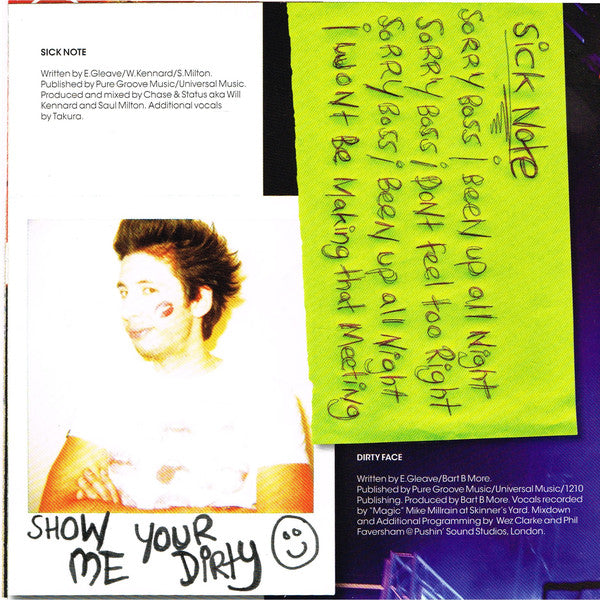 SICK NOTE
Written by E.Gleave/W.Kennard/S.Milton.
Published by Pure Groove Music/Universal Music.
Produced and mixed by Chase & Status aka Will
Kennard and Saul Milton. Additional vocals
by Takura.
Sick Note
Sorry Boss i Been up all Night
Sorry Boss i Don't feel too Right
Sorry Boss i Been up all Night
i won't Be Making that Meeting
SHOW YOUR
ME DIRTY
DIRTY FACE
Written by E.Gleave/Bart B More.
Published by Pure Groove Music/Universal Music/1210
Publishing. Produced by Bart B More. Vocals recorded
by "Magic" Mike Millrain at Skinner's Yard. Mixdown
and Additional Programming by Wez Clarke and Phil
Faversham @ Pushin' Sound Studios, London.